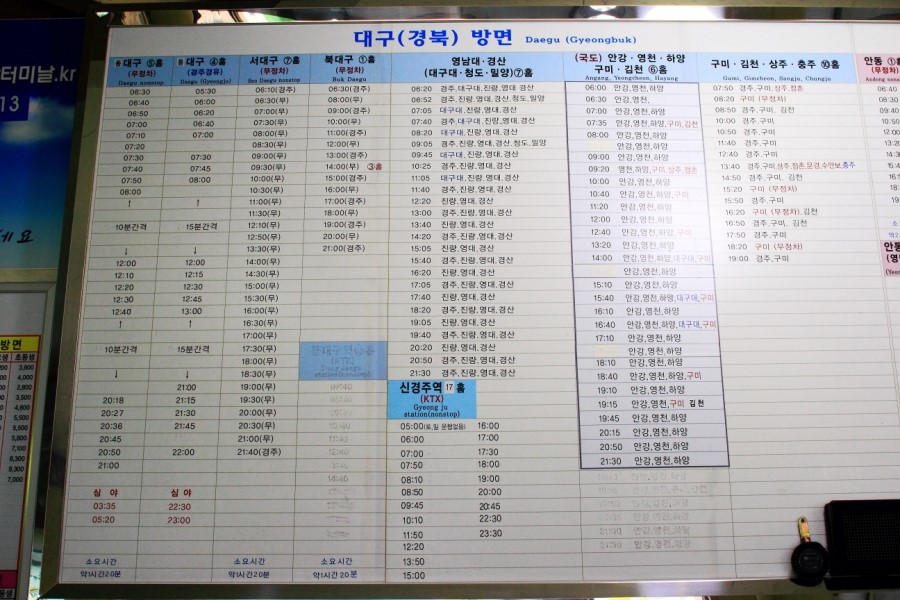 터미널.kr
대구(경북) 방면 Daegu (Gyeongbuk)
대구 ⑤홈
(무정차)
Daegu nonstop
06:30
06:40
06:50
07:00
07:10
07:20
07:30
07:40
07:50
08:00
↑
10분간격
↓
12:00
12:10
12:20
12:30
12:40
↑
10분간격
↓
20:18
20:27
20:36
20:45
20:50
21:00
심 야
03:35
05:20
소요시간
약1시간20분
대구 ④홈
(경주경유)
Daegu (Gyeongju)
05:30
06:00
06:20
06:40
07:00
07:30
07:45
08:00
↑
15분간격
↓
12:00
12:15
12:30
12:45
13:00
↑
15분간격
↓
21:00
21:15
21:30
21:45
22:00
심 야
22:30
23:00
서대구 ⑦홈
(무정차)
Seo Daegu nonstop
06:10(경주)
06:30(무)
07:00(무)
07:30(무)
08:00(무)
08:30(무)
09:00(무)
09:30(무)
10:00(무)
10:30(무)
11:00(무)
11:30(무)
12:10(무)
12:50(무)
13:30(무)
14:00(무)
14:30(무)
15:00(무)
15:30(무)
16:00(무)
16:30(무)
17:00(무)
17:30(무)
18:00(무)
18:30(무)
19:00(무)
19:30(무)
20:00(무)
20:30(무)
21:00(무)
21:40(경주)
소요시간
약1시간20분
북대구 ①홈
(무정차)
Buk Daegu
06:30(경주)
08:00(무)
09:00(경주)
10:00(무)
11:00(경주)
12:00(무)
13:00(경주)
14:00(무) ③홈
15:00(경주)
16:00(무)
17:00(경주)
18:00(무)
19:00(경주)
20:00(무)
21:00(경주)
소요시간
약1시간 20분
영남대·경산
(대구대·청도·밀양)⑦홈
06:20 경주,대구대,진량,영대,경산
06:52 경주,진량,영대,경산,청도,밀양
07:05 대구대,진량,영대,경산
07:40 경주,대구대,진량,영대,경산
08:20 대구대,진량,영대,경산
09:05 경주,진량,영대,경산,청도,밀양
09:45 대구대,진량,영대,경산
10:25 경주,진량,영대,경산
11:05 대구대,진량,영대,경산
11:40 경주,진량,영대,경산
12:20 진량,영대,경산
13:00 경주,진량,영대,경산
13:40 진량,영대,경산
14:20 경주,진량,영대,경산
15:05 진량,영대,경산
15:40 경주,진량,영대,경산
16:20 진량,영대,경산
17:05 경주,진량,영대,경산
17:40 진량,영대,경산
18:20 경주,진량,영대,경산
19:05 진량,영대,경산
19:40 경주,진량,영대,경산
20:20 진량,영대,경산
20:50 경주,진량,영대,경산
21:30 경주,진량,영대,경산
신경주역 17 홈
(KTX)
Gyeong ju
station(nonstop)
05:00(토,일 운행없음) 16:00
06:00 17:00
07:00 17:30
07:50 18:00
08:10 19:00
08:50 20:00
09:45 20:45
10:10 22:30
11:50 23:30
12:20
13:50
15:00
(국도) 안강·영천·하양
구미·김천 ⑥홈
Angang, Yeongcheon, Hayang
06:00 안강,영천,
안강,영천,
07:00 안강,영천,하양
07:35 안강,영천,하양,구미,김천
08:00 안강,영천,하양
안강,영천,하양
09:00 안강,영천,하양
09:20 영천,하양,구미,상주,점촌
10:00 안강,영천,하양
10:40 안강,영천,하양,구미
11:20 안강,영천,하양
12:00 안강,영천,하양
12:40 안강,영천,하양,구미
13:20 안강,영천,하양
14:00 안강,영천,하양,대구대,구미
안강,영천,하양
15:10 안강,영천,하양
15:40 안강,영천,하양,대구대,구미
16:10 안강,영천,하양
16:40 안강,영천,하양,대구대,구미
17:10 안강,영천,하양
안강,영천,하양
18:10 안강,영천,하양
18:40 안강,영천,하양,구미
19:10 안강,영천,하양
19:15 안강,영천,구미 김천
19:45 안강,영천,하양
20:15 안강,영천,하양
20:50 안강,영천,하양
21:30 안강,영천,하양
구미·김천·상주·충주 ⑯홈
Gumi, Gimcheon, Sangju, Chungju
07:50 경주,구미,상주,점촌
08:20 구미 (무정차)
08:50 경주,구미, 김천
10:00 경주,구미
10:50 경주,구미
11:40 경주,구미
12:40 경주,구미
13:40 경주,구미,상주,점촌,문경,수안보,충주
14:50 경주,구미, 김천
15:20 구미 (무정차)
15:50 경주,구미
16:20 구미 (무정차),김천
16:50 경주,구미
17:50 경주,구미
18:20 구미 (무정차)
19:00 경주,구미
안동